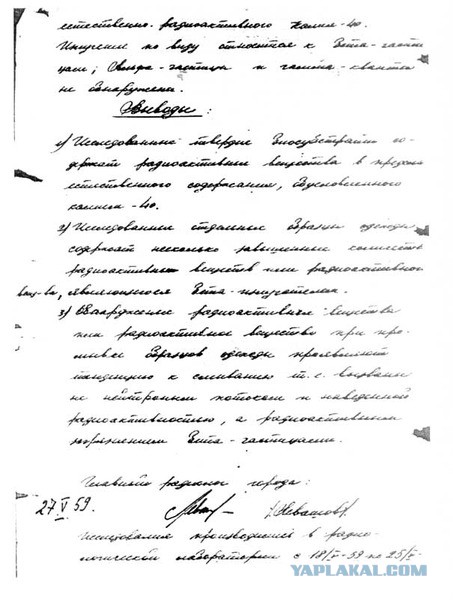 естественно-радиоактивного калия-40.
Излучение по виду относится к Бета-части-
цам; Альфа-частицы и гамма-кванты
не обнаружены.
Выводы:
1) Исследованные твердые биосубстраты со-
держат радиоактивные вещества в пределах
естественного содержания, обусловленного
калием-40.
2) Исследованные отдельные образцы одежды
содержат несколько завышенные количества
радиоактивных веществ или радиоактивное
вещ-ва, являющегося Бета-излучателем.
3) Обнаруженные радиоактивные вещества
или радиоактивное вещество при про-
мывке образцов одежды проявляют
тенденцию к смыванию т.е. вызваны
не нейтронным потоком и наведенной
радиоактивностью, а радиоактивным
загрязнением Бета-частицами.
Главный радиолог города:
27 V 59. Левашов
Исследования производились в радио-
логической лаборатории с 18/V-59 по 25/V-
YAPLAKAL.COM